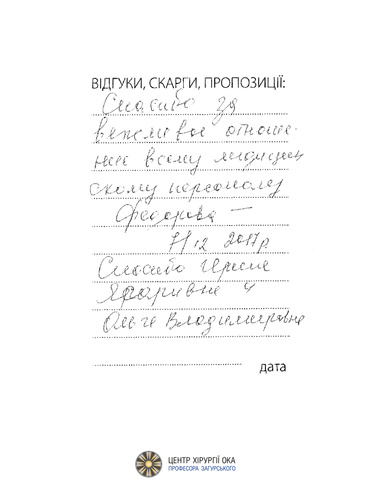 ВІДГУКИ, СКАРГИ, ПРОПОЗИЦІЇ:
Спасибо за
вежливое отноше-
ние всему медицин
скому персоналу
Федорова —
12 2017р.
Спасибо Ирине
и
Ольге Владимировне
дата
ЦЕНТР ХІРУРГІЇ ОКА
ПРОФЕСОРА ЗАГУРСЬКОГО